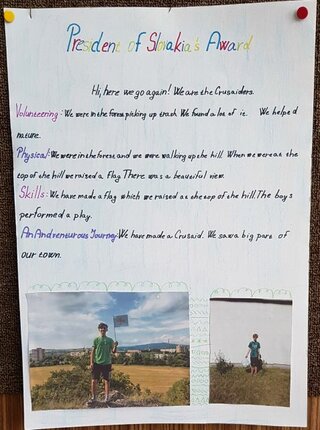 President of Slovakia's Award
Hi, here we go again! We are the Crusaiders.
Volunteering: We were in the forest picking up trash. We found a lot of it. We helped
nature.
Physical: We were in the forest, and we were walking up the hill. When we were at the
top of the hill we raised a flag. There was a beautiful view.
Skills: We have made a flag which we raised at the top of the hill. The boys
performed a play.
An Andreneurous Journey: We have made a Crusaid. We saw a big part of
our town.